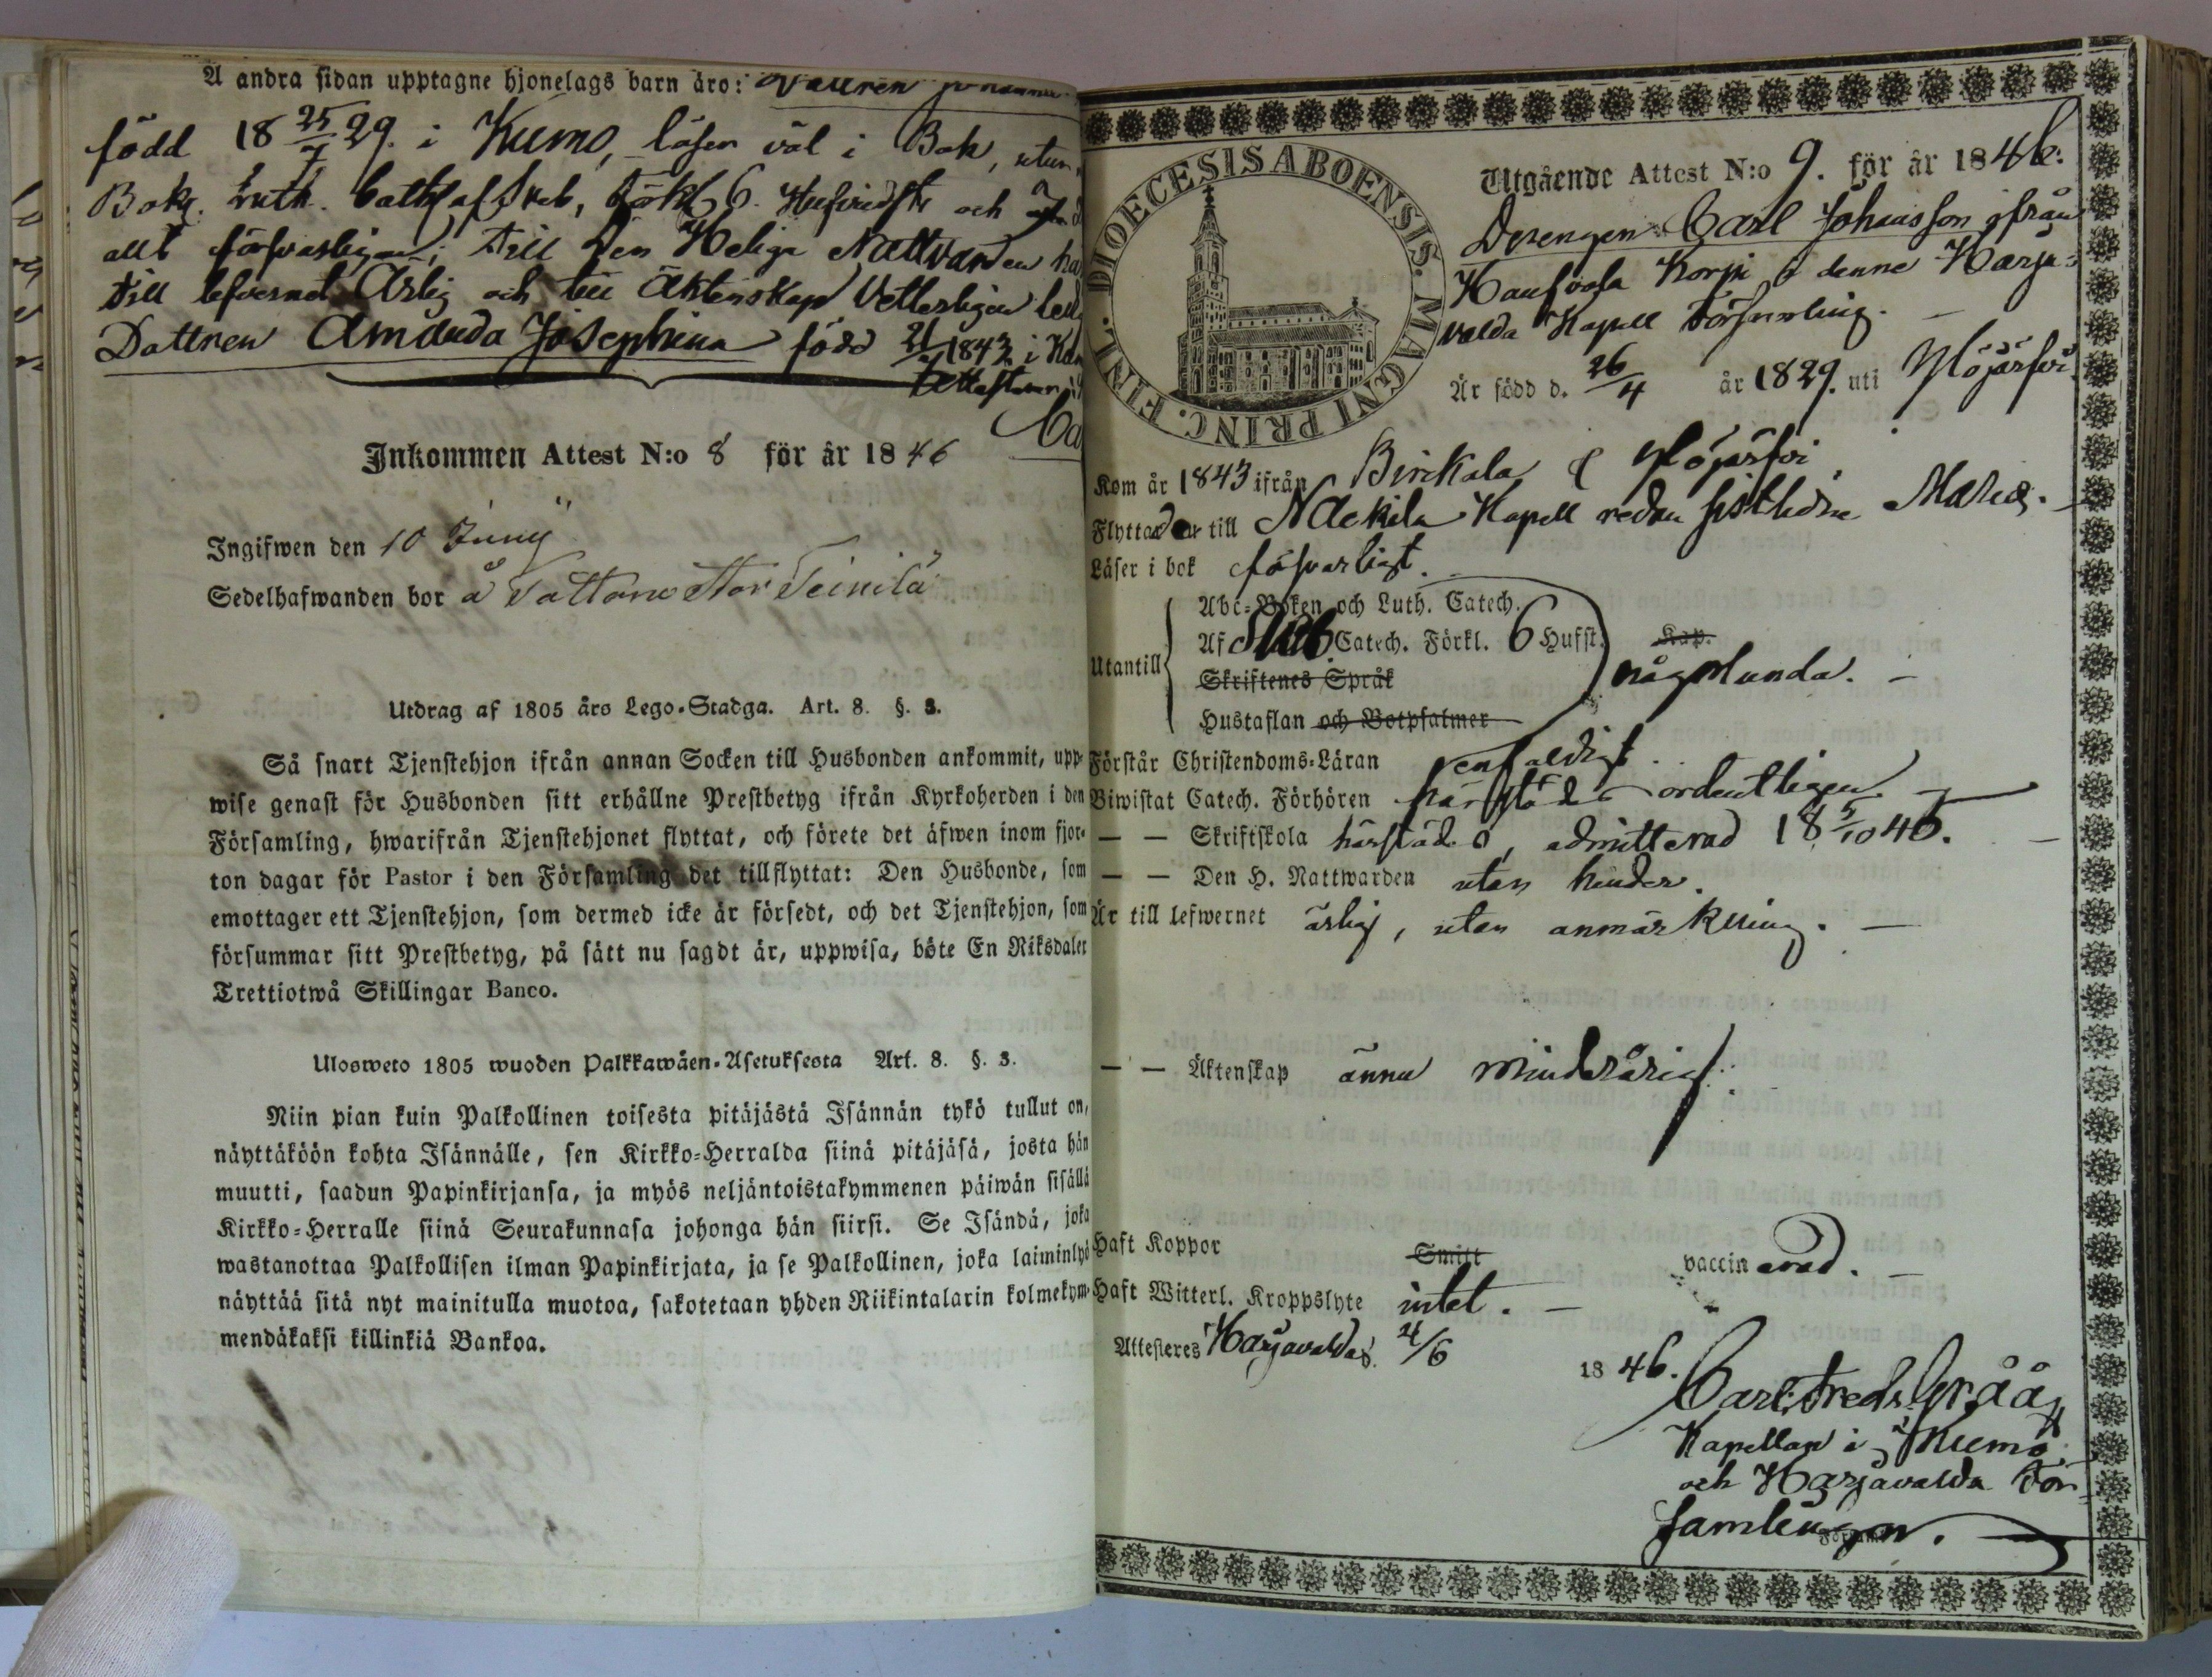 A andra sidan upptagne hjonelags barn äro:
född 18 25/7 29. i Kumo, läser väl i Bok, utan
Bok. Luth. Cath. af Sveb. Förkl. 6. Hufvudst. och
allt försvarligen; till den Heliga Nattvarden
till lefvernet Ärlig och till Äktenskap Vetterligen
Dottren Amanda Josephina född 21/7 1843 i
Attesterar
Inkommen Attest N:o 8 för år 1846
Ingifwen den 10 Junij
Sedelhafwanden bor å Tattara Stor Teinilä
Utdrag af 1805 års Lego-Stadga. Art. 8. §. 3.
Så snart Tjenstehjon ifrån annan Socken till Husbonden ankommit, upp-
wise genast för Husbonden sitt erhållne Prestbetyg ifrån Kyrkoherden i den
Församling, hwarifrån Tjenstehjonet flyttat, och förete det äfwen inom fjor-
ton dagar för Pastor i den Församling det tillflyttat: Den Husbonde, som
emottager ett Tjenstehjon, som dermed icke är försedt, och det Tjenstehjon, som
försummar sitt Prestbetyg, på sätt nu sagdt är, uppwisa, böte En Riksdaler
Trettiotwå Skillingar Banco.
Ulosweto 1805 wuoden Palkkawäen-Asetuksesta Art. 8. §. 3.
Niin pian kuin Palkollinen toisesta pitäjästä Isännän tykö tullut on,
näyttäköön kohta Isännälle, sen Kirkko-Herralda siinä pitäjäsä, josta hän
muutti, saadun Papinkirjansa, ja myös neljäntoistakymmenen päiwän sisällä
Kirkko-Herralle siinä Seurakunnasa johonga hän siirsi. Se Isändä, joka
wastanottaa Palkollisen ilman Papinkirjata, ja se Palkollinen, joka laiminlyö
näyttää sitä nyt mainitulla muotoa, sakotetaan yhden Riikintalarin kolmekym-
mendäkaksi killinkiä Bankoa.
DIOECESIS ABOENSIS. MAGNI PRINC. FINL.
Utgående Attest N:o 9. för år 1846.
Drengen Carl Johansson ifrån
Korpi i denne Harja-
valda Kapell Församling.
Är född d. 26/4 år 1829. uti Ylöjärfvi
Kom år 1843 ifrån Birkala & Ylöjärfvi
Flyttade till Nackila Kapell redan sistledne Martii.
Läser i bok försvarligt.
Utantill
Abc-Boken och Luth. Catech.
Af Sveb. Catech. Förkl. 6 Hufst. Kap.
Skriftenes Språk någorlunda.
Hustaflan och Botpsalmer
Förstår Christendoms-Läran enfaldigt.
Biwistat Catech. Förhören härstädes ordentligen
— — Skriftskola härstädes, admitterad 18 5/10 45.
— — Den H. Nattwarden utan hinder.
Är till lefwernet ärlig, utan anmärkning.
— — Äktenskap ännu minderårig.
Haft Koppor Smitt vaccinerad.
Haft Witterl. Kroppslyte intet.
Attesteres Harjavalda d. 4/6 1846.
Carl Fredr. Gråå
Kapellan i Kumo
och Harjavalda För-
samlingar.